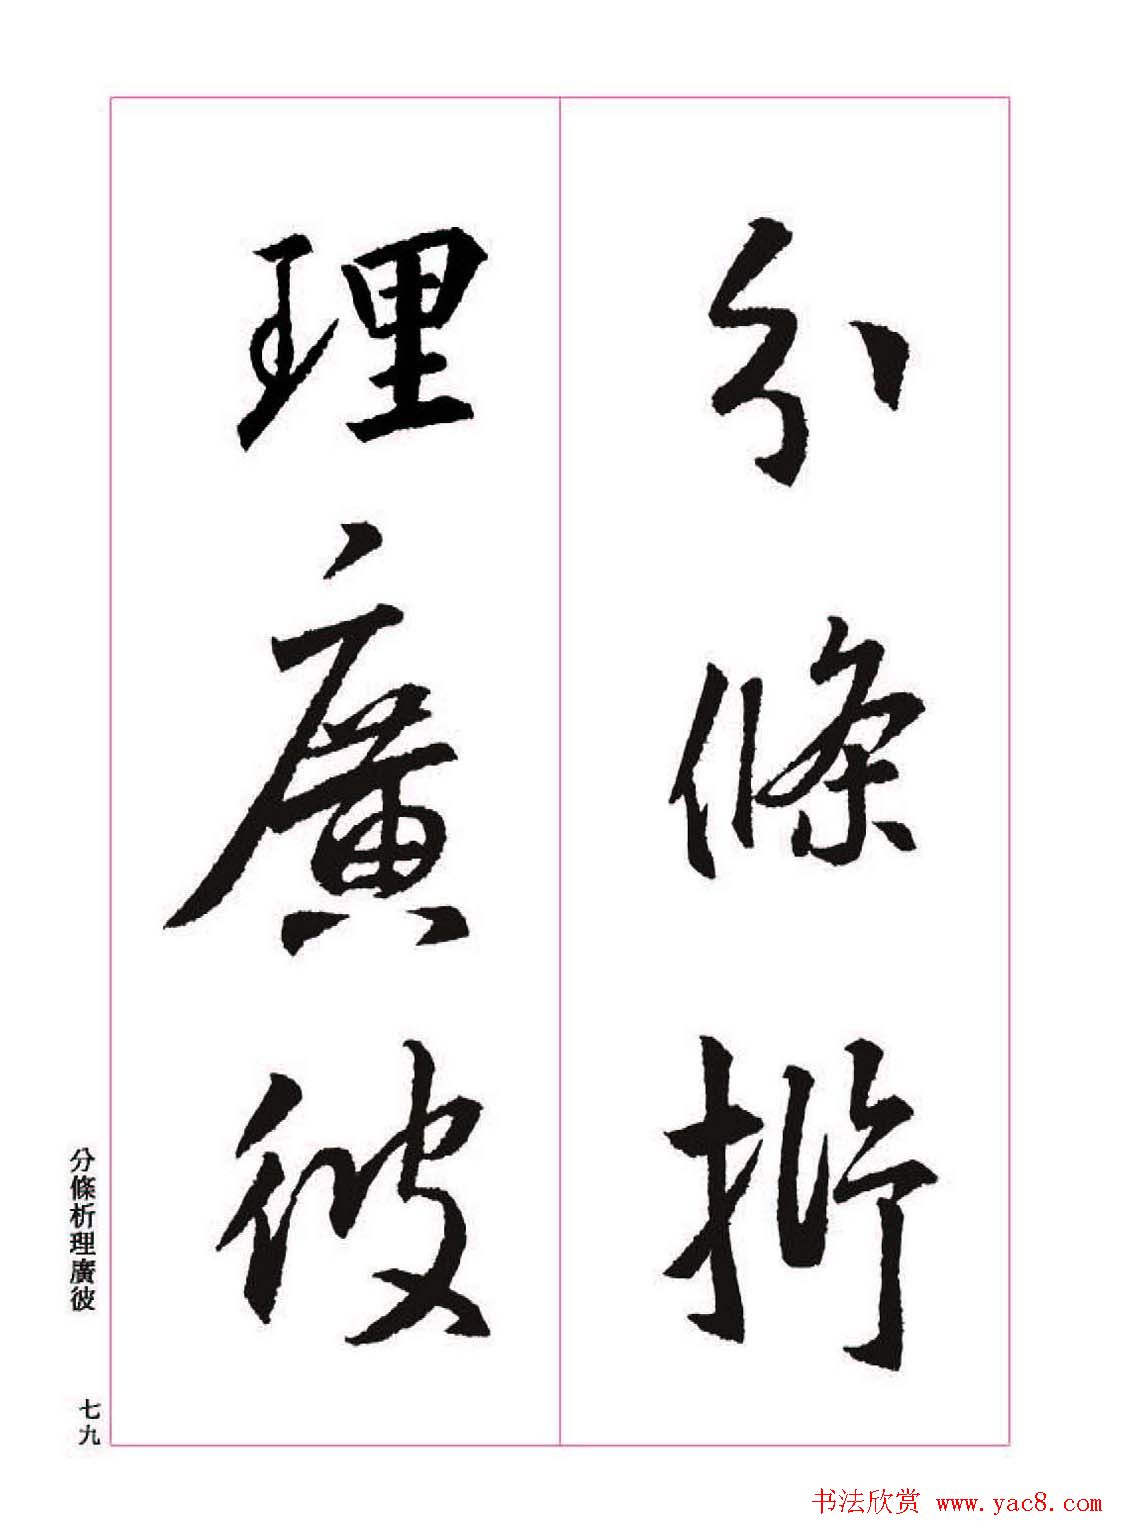 分條析
理廣彼
分條析理廣彼
七九
书法欣赏 www.yac8.com